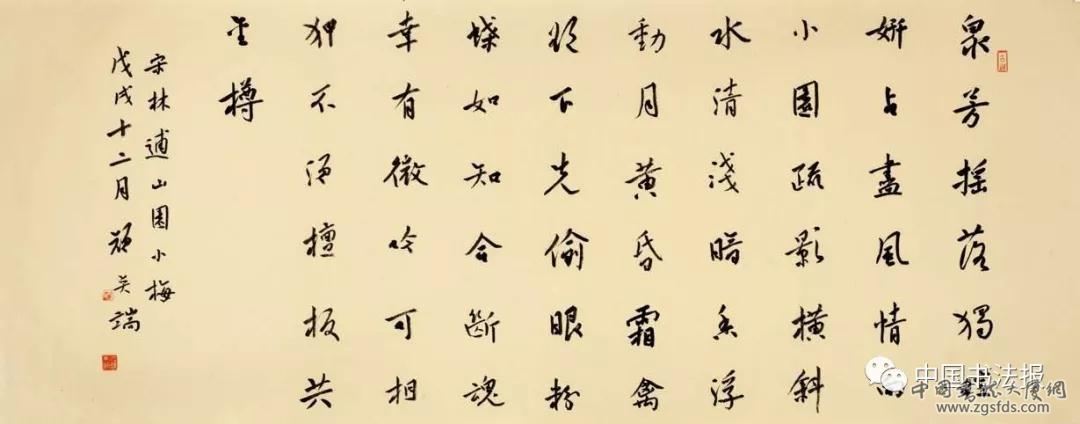 衆芳摇落獨暄
妍占盡風情向
小園疏影横斜
水清淺暗香浮
動月黄昏霜禽
欲下先偷眼粉
蝶如知合斷魂
幸有微吟可相
狎不須檀板共
金樽
宋林逋山園小梅
戊戌十二月顏奕端
中国书法报
中國書法大廈網
www.zgsfds.com